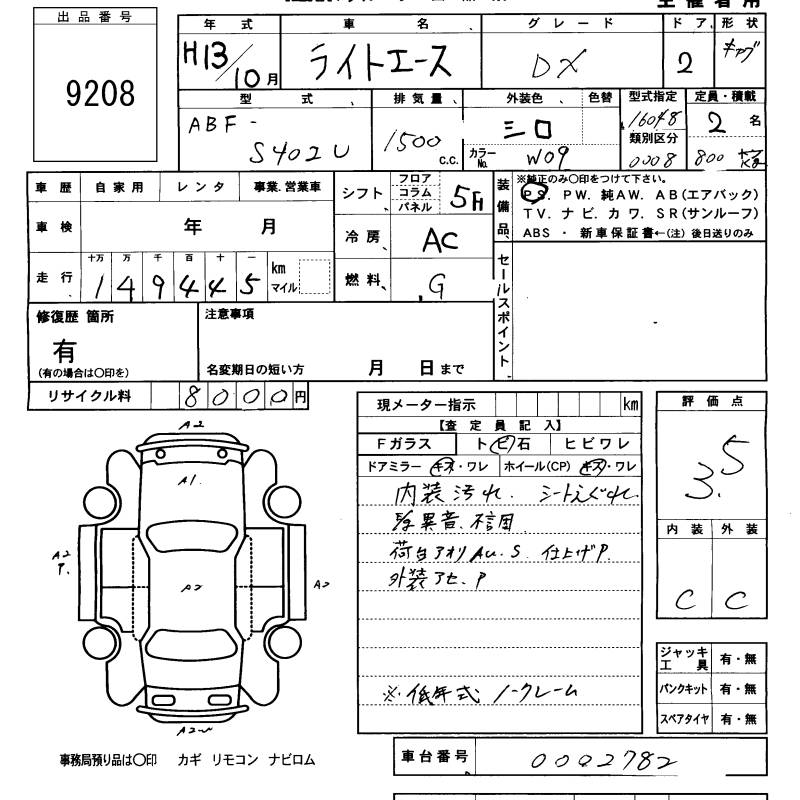 出品番号
9208
年式 車名 グレード ドア 形状
H13/10月 ライトエース DX 2 キャブ
型式 排気量 外装色 色替 型式指定 定員・積載
ABF- 1500 シロ 16048 2名
類別区分
S402U c.c. カラーNo. W09 0008 800 kg
車歴 自家用 レンタ 事業.営業車
シフト フロア コラム パネル 5F
装備品
※純正のみ○印をつけて下さい。
PS. PW. 純AW. AB(エアバッグ)
TV. ナビ. カワ. SR(サンルーフ)
ABS ・ 新車保証書←(注) 後日送りのみ
車検 年 月
冷房 AC
走行 十万 万 千 百 十 一
149445 km マイル
燃料 G
セールスポイント
修復歴 箇所
有
(有の場合は○印を)
注意事項
名変期日の短い方 月 日まで
リサイクル料 8000円
現メーター指示 km
【査定員記入】
Fガラス トビ石 ヒビワレ
ドアミラー キズ・ワレ ホイール(CP) キズ・ワレ
内装汚れ. シートえぐれ
異音.
荷台アオリ AU.S 仕上げP.
外装アセ.P
※低年式 ノークレーム
評価点
3.5
内装 外装
C C
A2
A1.
A2
P.
A2
A2
A2W
ジャッキ工具 有・無
パンクキット 有・無
スペアタイヤ 有・無
事務局預り品は○印 カギ リモコン ナビロム
車台番号 0002782